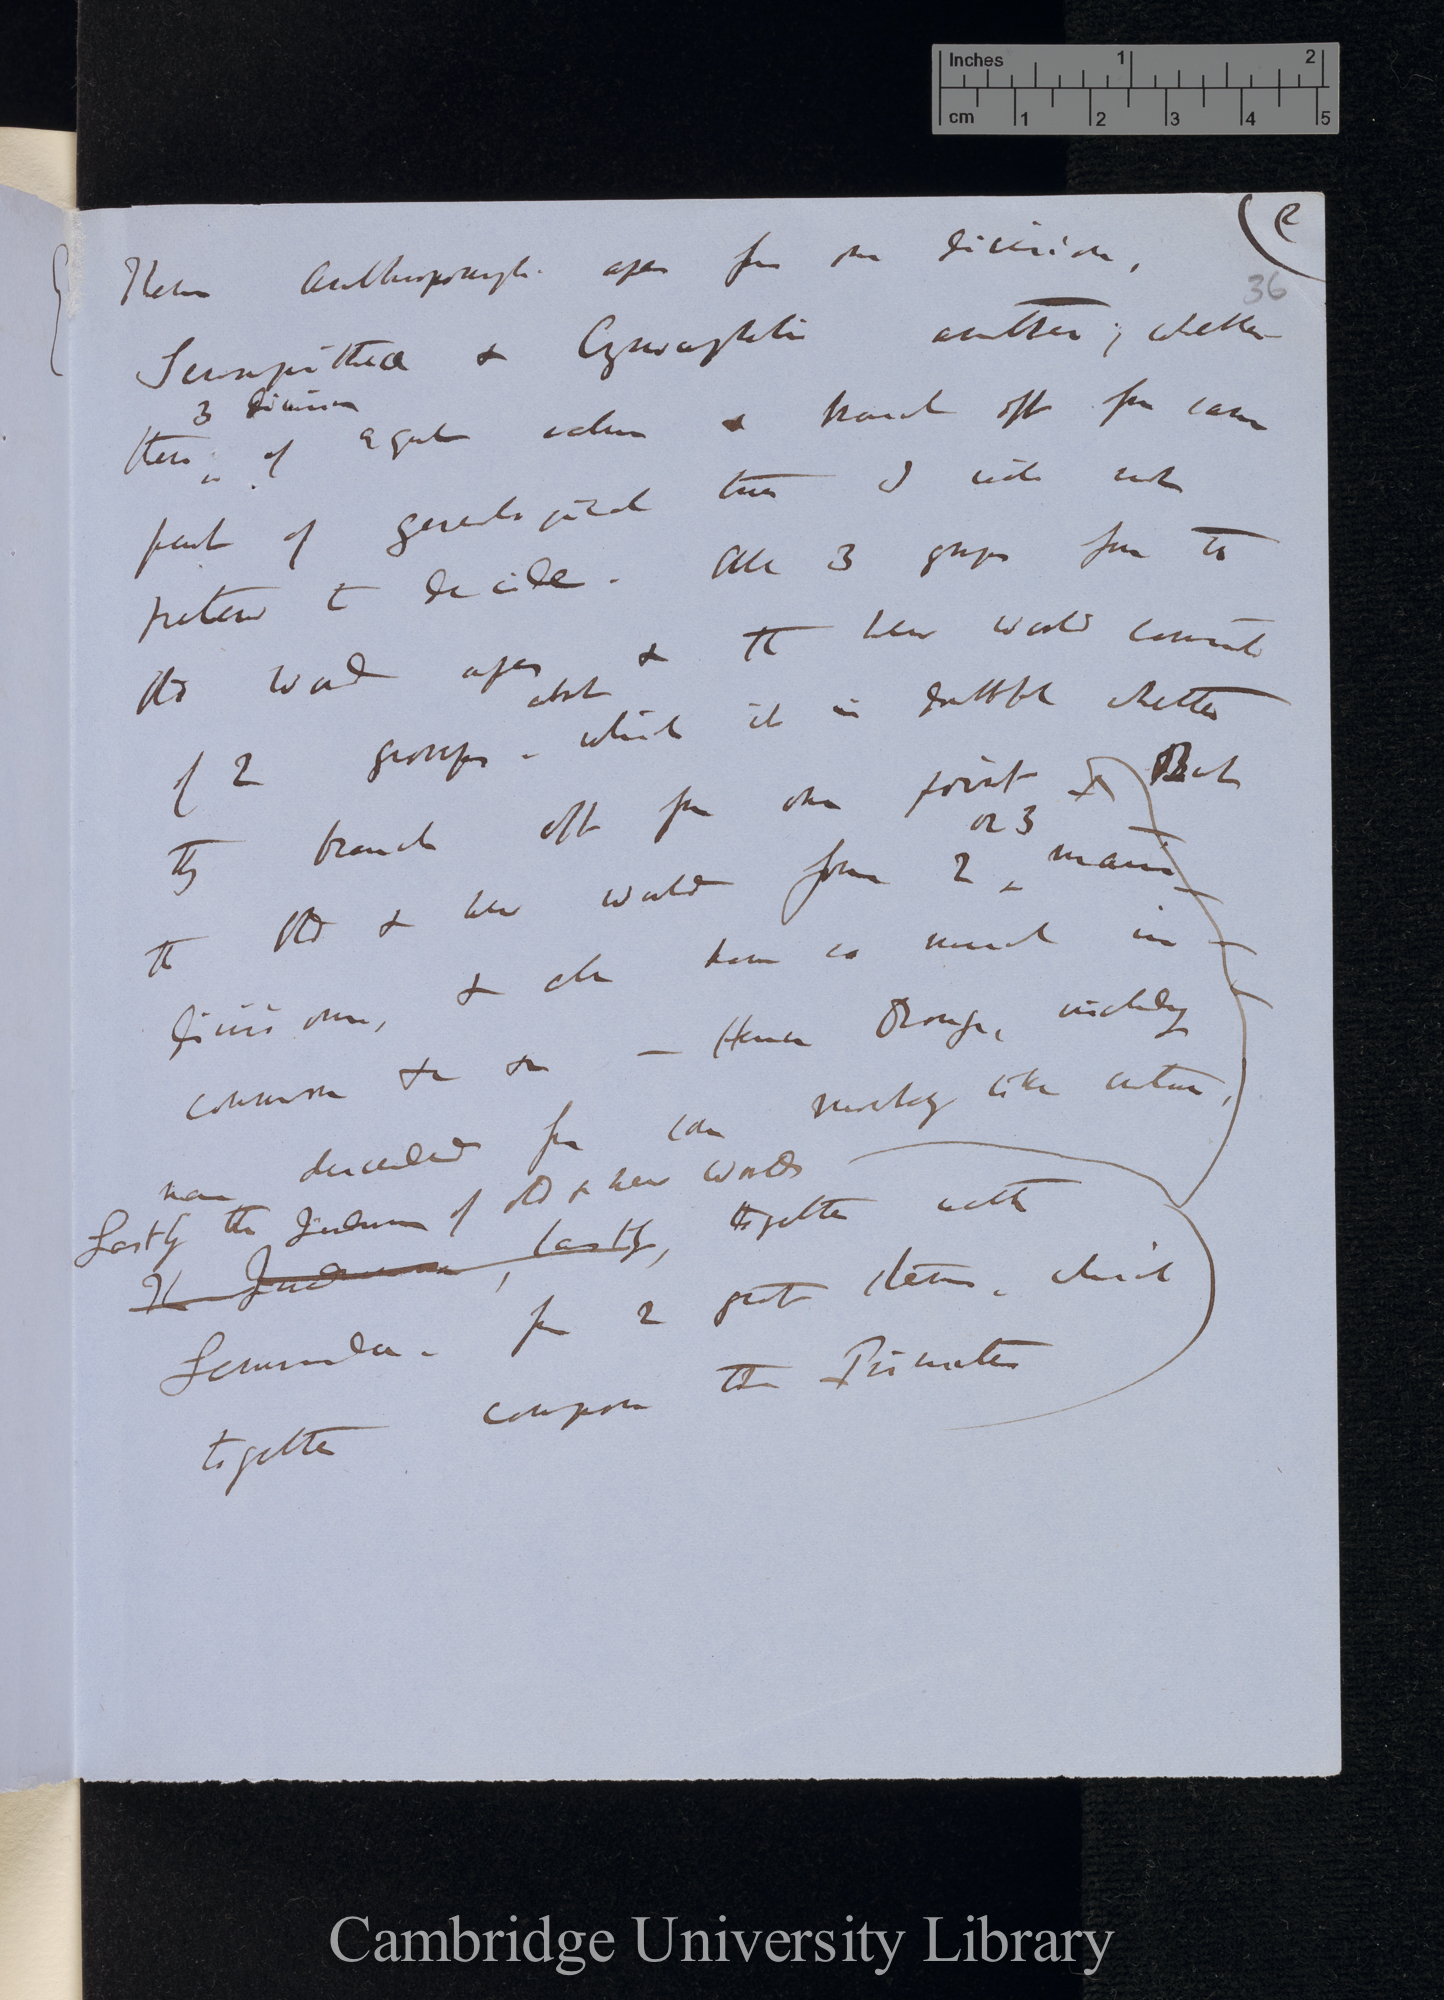 Inches 1 2
cm 1 2 3 4 5
(2
36
These Anthropomorph. apes form one division,
Semnopitheca & Cynocephali another; whether
3 division
these is of equal value & branch off from same
part of genealogical tree I will not
pretend to decide. All 3 groups form the
Old World apes & the New World consists
about
of 2 groups. which it is doubtful whether
they branch off from one point Both
or 3
the Old & New World form 2 main
divisions, & all have so much in
common &c &c — Hence though, including
man descended from some monkey like creature,
Lastly the of old & new worlds
The lastly, together with
Lemuridae. form 2 great stems, which
together compose the Primates
Cambridge University Library